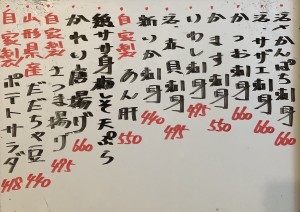 活・かんぱち刺身 660
活・サザエ刺身 660
かつお刺身 660
かます刺身 550
いわし刺身 495
活・赤貝刺身 495
新いか刺身 440
自家製 あん肝 550
鶏ササ身梅しそ天ぷら
かれい唐揚げ 660
自家製 さつま揚げ 495
山形県産 だだちゃ豆 440
自家製 ポテトサラダ 418